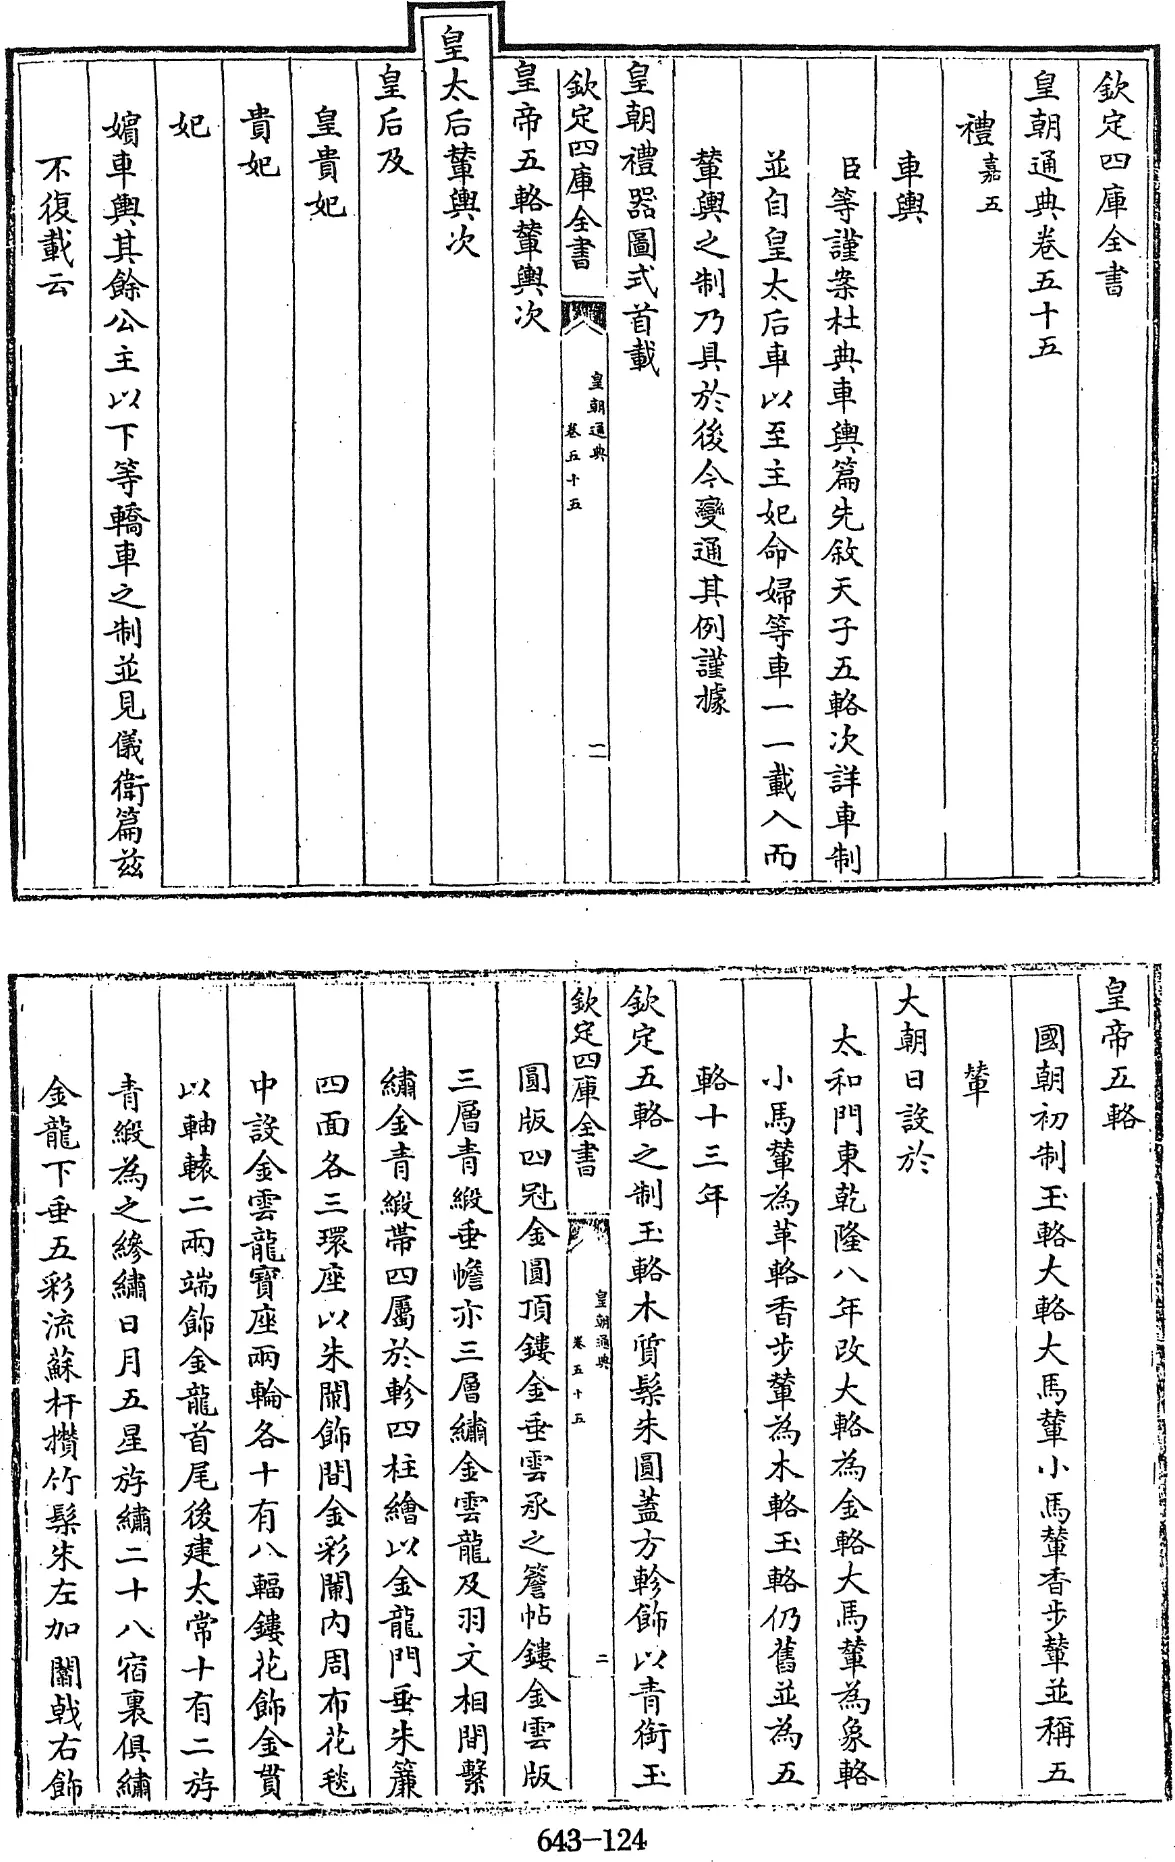 欽定四庫全書
皇朝通典卷五十五
禮嘉五
車輿
臣等謹案杜典車輿篇先敘天子五輅次詳車制
並自皇太后車以至主妃命婦等車一一載入而
輦輿之制乃具於後今變通其例謹據
皇朝禮器圖式首載
欽定四庫全書
皇朝通典
卷五十五
一
皇帝五輅輦輿次
皇太后輦輿次
皇后及
皇貴妃
貴妃
妃
嬪車輿其餘公主以下等轎車之制並見儀衛篇茲
不復載云
皇帝五輅
國朝初制玉輅大輅大馬輦小馬輦香步輦並稱五
輦
大朝日設於
太和門東乾隆八年改大輅為金輅大馬輦為象輅
小馬輦為革輅香步輦為木輅玉輅仍舊並為五
輅十三年
欽定五輅之制玉輅木質髹朱圓蓋方軫飾以青銜玉
欽定四庫全書
皇朝通典
卷五十五
二
圓版四冠金圓頂鏤金垂雲承之簷帖鏤金雲版
三層青緞垂幨亦三層繡金雲龍及羽文相間繫
繡金青緞帶四屬於軫四柱繪以金龍門垂朱簾
四面各三環座以朱闌飾間金彩闌内周布花毯
中設金雲龍寳座兩輪各十有八輻鏤花飾金貫
以軸轅二兩端飾金龍首尾後建太常十有二斿
青緞為之縿繡日月五星斿繡二十八宿裏俱繡
金龍下垂五彩流蘇杆攅竹髹朱左加闟戟右飾
643-124